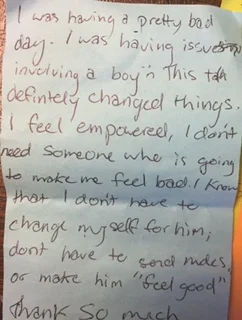 I was having a pretty bad
day. I was having issues
involving a boy. This talk
defintely changed things.
I feel empowered, I don't
need someone who is going
to make me feel bad. I know
that I don't have to
change myself for him,
dont have to send nudes,
or make him "feel good".
Thank so much